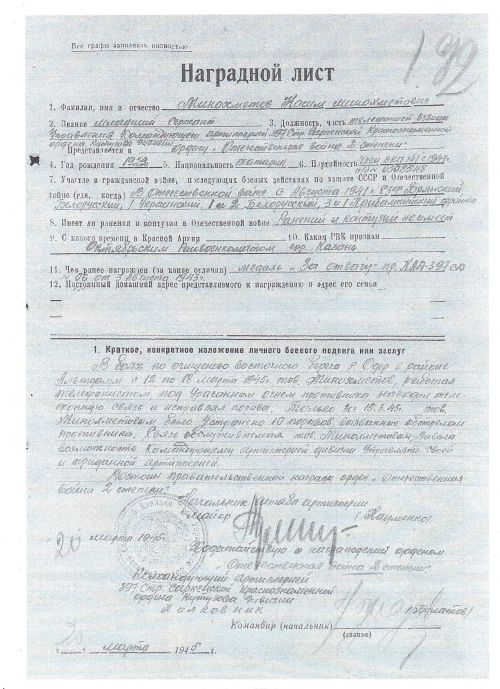 Все графы заполнить полностью
192
Наградной лист
1. Фамилия, имя и отчество Минохметов Касим Минохметович
2. Звание Младший Сержант 3. Должность, часть телефонист взвода
Управления Командующего артиллерией 397 Стр. Сарненской Краснознаменной
ордена Кутузова дивизии
Представляется к ордену „Отечественная война 2 степени"
4. Год рождения 5. Национальность татарин 6. Партийность член ВКП(б) с 1944г.
7. Участие в гражданской войне, последующих боевых действиях по защите СССР и Отечественной
войне (где, когда) В Отечественной войне с Августа 1941г.
Белорусский, 1 Украинский, 1 и 2 Белорусский, 3 и 1 Прибалтийский фронта
8. Имеет ли ранения и контузии в Отечественной войне Ранений и контузий не имеет
9. С какого времени в Красной Армии 10. Каким РВК призван
Октябрьским Райвоенкоматом гор. Казань
11. Чем ранее награжден (за какие отличия) медаль „За отвагу" пр. 397 сд
№ 06 от 3 Августа 1943г.
12. Постоянный домашний адрес представляемого к награждению и адрес его семьи
1. Краткое, конкретное изложение личного боевого подвига или заслуг
В боях по очищению восточного берега р. Одер в районе
Альтдамм с 12 по 18 марта 1945г. тов. Минохметов, работая
телефонистом под ураганным огнем противника наводил теле
фонную связь и исправлял порывы. Только за 15.3.45г. тов.
Минохметовым было устранено 10 порывов вызванных обстрелом
противника. Связь обслуживаемая тов. Минохметовым давала
возможность Командующему артиллерией дивизии управлять своей
и приданной артиллерией.
Достоин правительственной награды орден „Отечественная
война 2 степени".
Начальник штаба артиллерии
майор (Науменко)
20 марта 1945г.
Ходатайствую о награждении орденом
„Отечественная война 2 степени".
Командующий Артиллерией
397 Стр. Сарненской Краснознаменной
ордена Кутузова дивизии
Полковник
Командир (начальник)
(звание)
20 марта 1945 г.